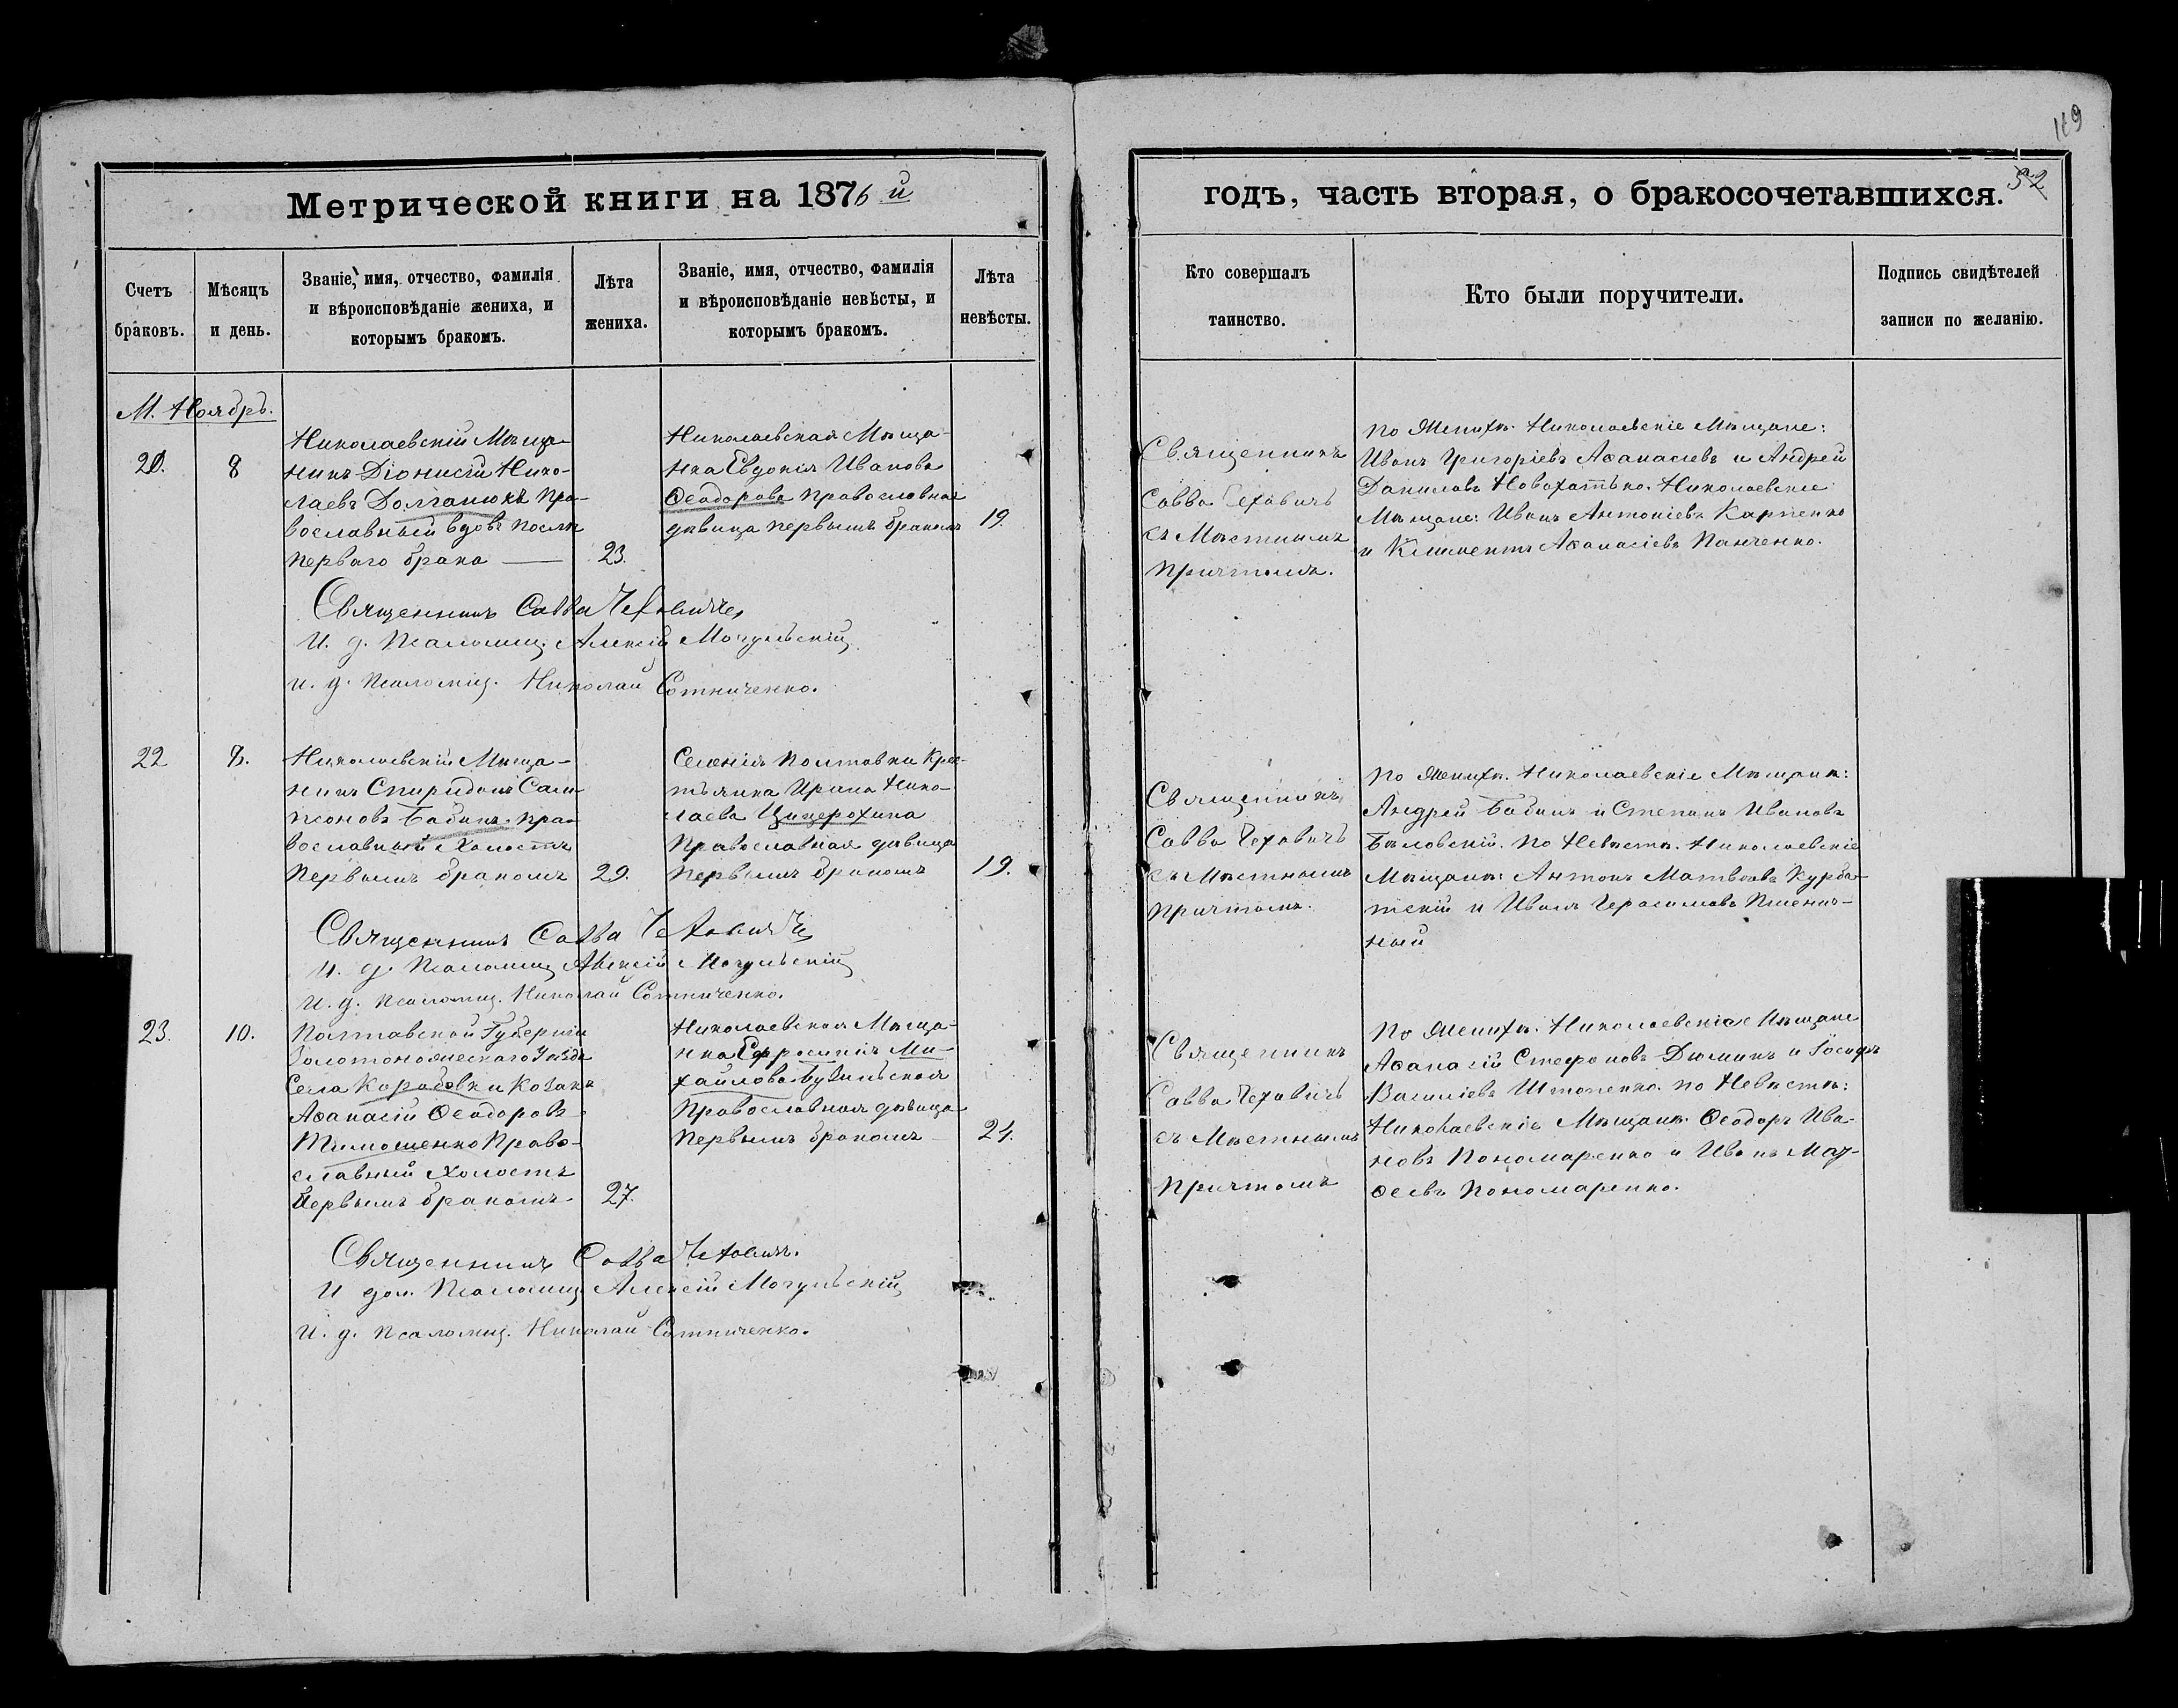 119
52
Метрической книги на 1876 й
годъ, часть вторая, о бракосочетавшихся.
Счетъ браковъ.
Мѣсяцъ и день.
Званіе, имя, отчество, фамилія
и вѣроисповѣданіе жениха, и
которымъ бракомъ.
Лѣта жениха.
Званіе, имя, отчество, фамилія
и вѣроисповѣданіе невѣсты, и
которымъ бракомъ.
Лѣта невѣсты.
Кто совершалъ
таинство.
Кто были поручители.
Подпись свидѣтелей
записи по желанію.
М. Ноябрь.
8
Николаевскій Мѣща-
нинъ Діонисій Нико-
лаевъ Долганюкъ пра-
вославный вдовъ послѣ
перваго брака
23.
Николаевская Мѣща-
нка Евдокія Иванова
Ѳеодорова православная
дѣвица первымъ бракомъ
19.
Священникъ
Савва Чеховичъ
съ Мѣстнымъ
причтомъ.
по Женихѣ. Николаевскіе Мѣщане:
Иванъ Григоріевъ Аѳанасіевъ и Андрей
Даниловъ Новохатько. Николаевскіе
Мѣщане: Иванъ Антоніевъ Карпенко
и Климентъ Аѳанасіевъ Панченко.
Священникъ Савва Чеховичъ
И. д. Псаломщ. Алексій Могульскій
и. д. псаломщ. Николай Сотниченко.
22
8.
Николаевскій Мѣща-
нинъ Спиридонъ Сам-
псоновъ Бабинъ пра-
вославный Холостъ
первымъ бракомъ
29.
Селенія Полтавки Крес-
тьянка Ирина Нико-
лаева
Православная дѣвица
первымъ бракомъ
19.
Священникъ
Савва Чеховичъ
съ Мѣстнымъ
причтомъ.
по Женихѣ. Николаевскіе Мѣщане:
Андрей Бабинъ и Степанъ Ивановъ
Бѣловскій. по Невѣстѣ. Николаевскіе
Мѣщане: Антонъ Матвѣевъ Курба-
тскій и Иванъ Герасимовъ Пшенич-
ный
Священникъ Савва Чеховичъ
И. д. Псаломщ. Алексій Могульскій
И. д. псаломщ. Николай Сотниченко.
23.
10.
Полтавской Губерніи
Золотоношескаго Уѣзда
Села Коробовки Козакъ
Аѳанасій Ѳеодоровъ
Тимошенко Право-
славный Холостъ
Первымъ бракомъ
27.
Николаевская Мѣща-
нка Ефросинія Ми-
хайлова
Православная дѣвица
первымъ бракомъ
Священникъ
Савва Чеховичъ
съ Мѣстнымъ
причтомъ
По Женихѣ. Николаевскіе Мѣщане
Аѳанасій Стефановъ Дюминъ и Іосифъ
Василіевъ по Невѣстѣ:
Николаевскіе Мѣщане Ѳеодоръ Ива-
новъ Пономаренко и Иванъ Мат-
ѳеевъ Пономаренко.
Священникъ Савва Чеховичъ.
И дол. Псаломщ Алексій Могульскій
И. д. псаломщ. Николай Сотниченко.